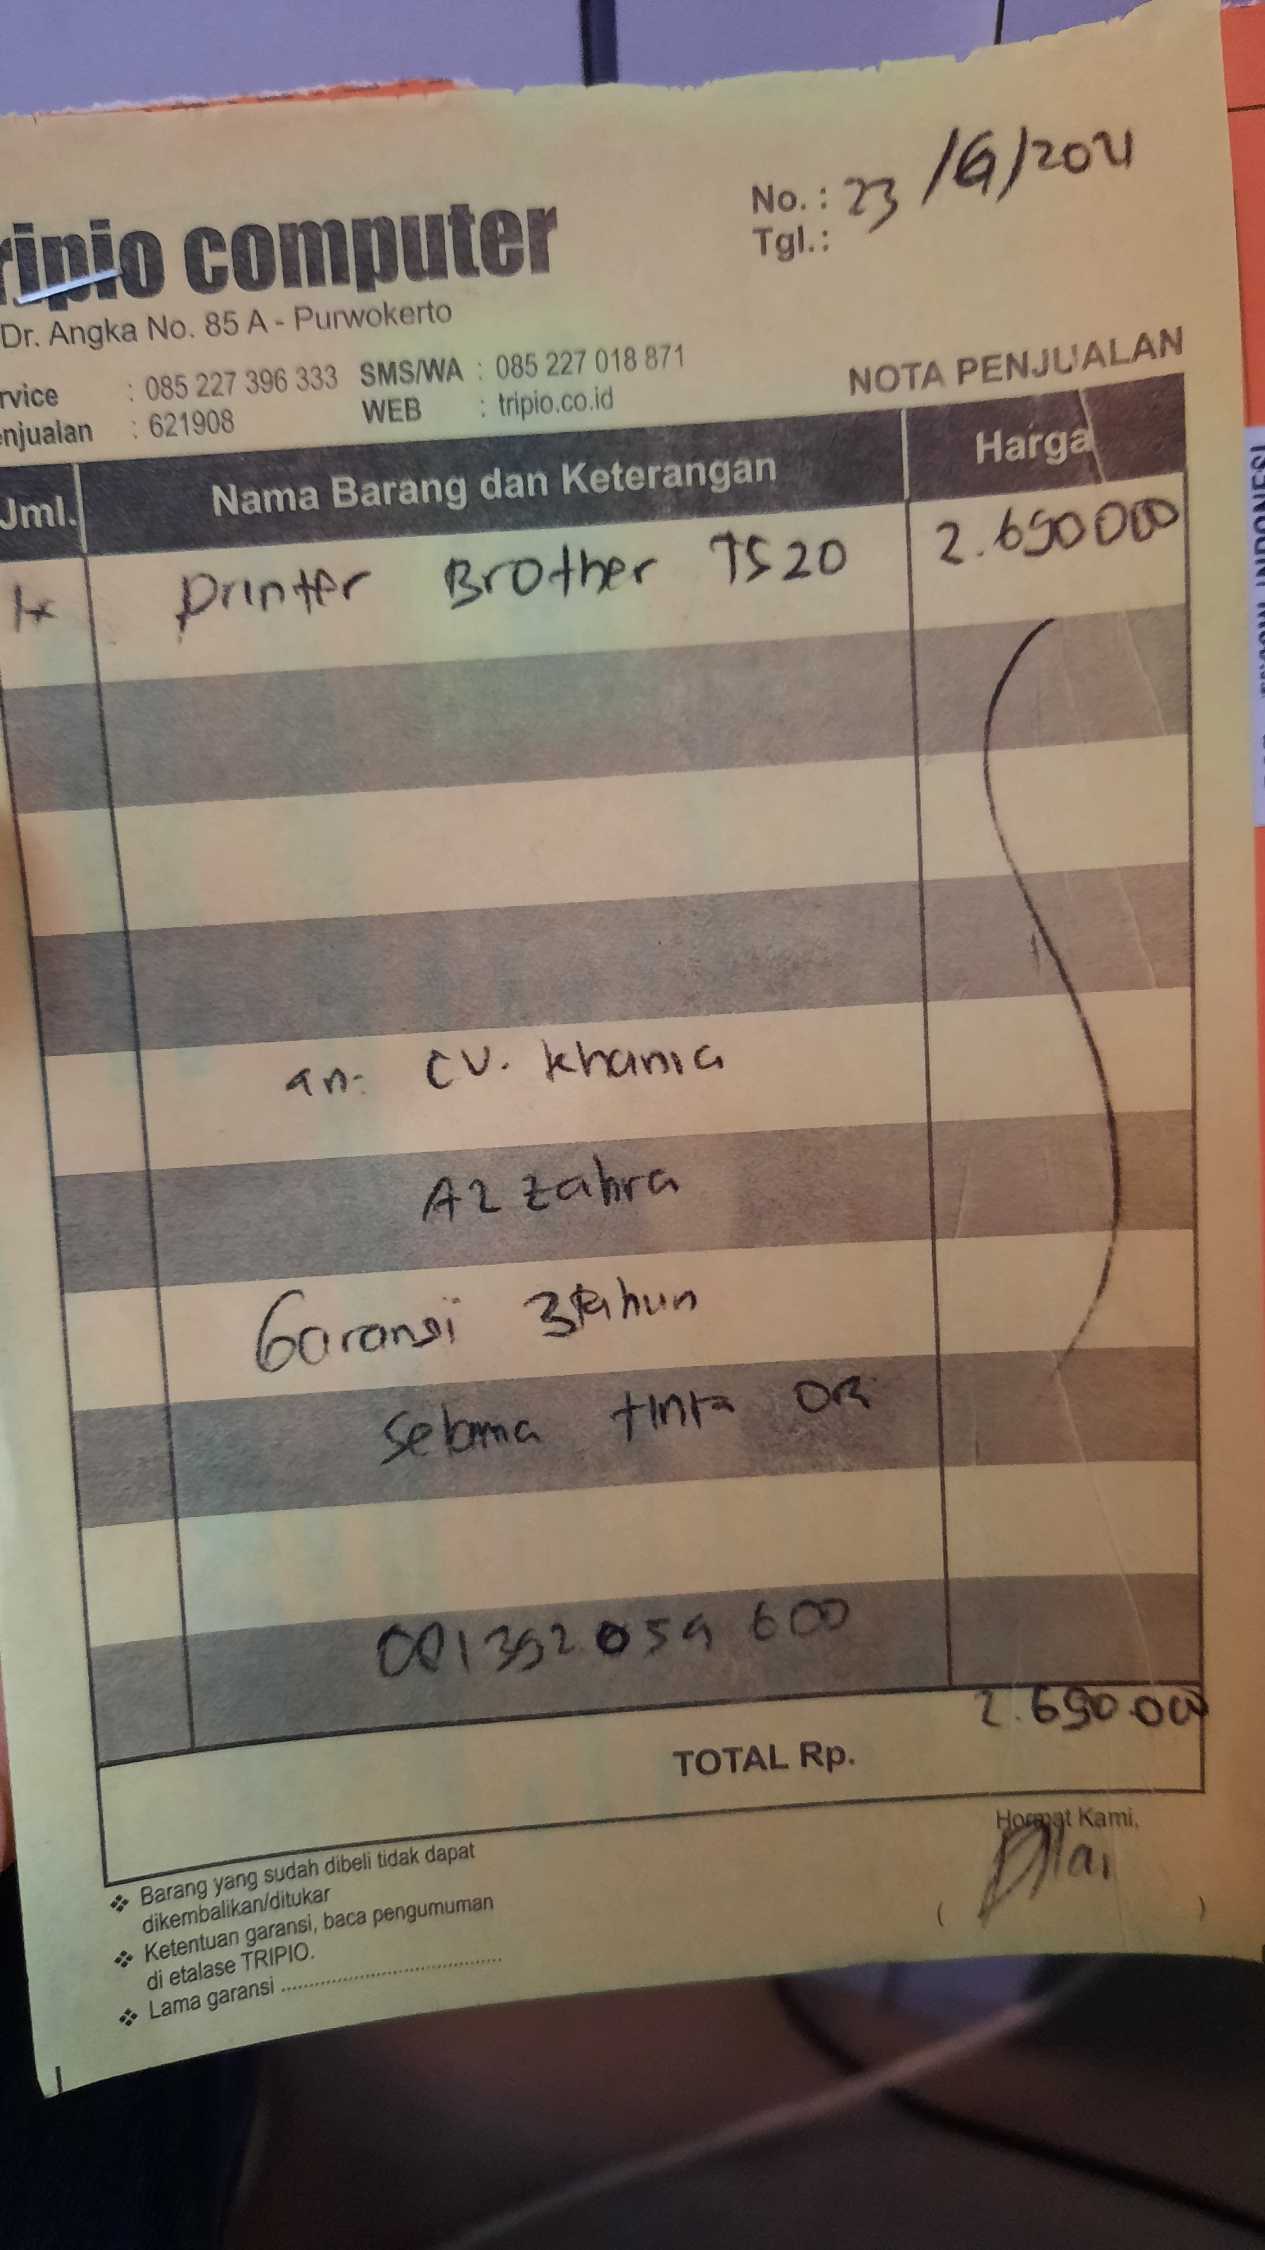 No. : 23 /6/2021
Tgl.:
ripio computer
Dr. Angka No. 85 A - Purwokerto
rvice : 085 227 396 333 SMS/WA : 085 227 018 871
enjualan : 621908 WEB : tripio.co.id
NOTA PENJUALAN
Jml. Nama Barang dan Keterangan Harga
1x Printer Brother T520 2.690000
an. CV. Khania
Azzahra
Garansi 3 tahun
selama tinta ori
2.690.000
TOTAL Rp.
Hormat Kami,
( )
❖ Barang yang sudah dibeli tidak dapat
dikembalikan/ditukar
❖ Ketentuan garansi, baca pengumuman
di etalase TRIPIO.
❖ Lama garansi ........................................